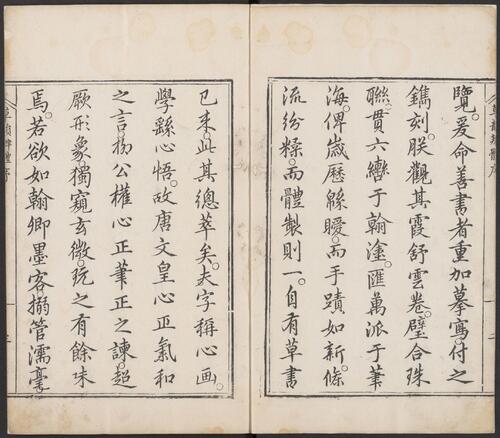 覽。爰命善書者重加摹寫。付之
鐫刻。朕觀其霞舒雲卷。璧合珠
聯。貫六轡于翰塗。匯萬派于筆
海。俾歲歷緜曖。而手蹟如新。條
流紛糅。而體製則一。自有草書
已來。此其總萃矣。夫字稱心畫。
學繇心悟。故唐文皇心正氣和
之言。柳公權心正筆正之諫。超
厥形象。獨窺玄微。玩之有餘味
焉。若欲如翰卿墨客。搦管濡毫